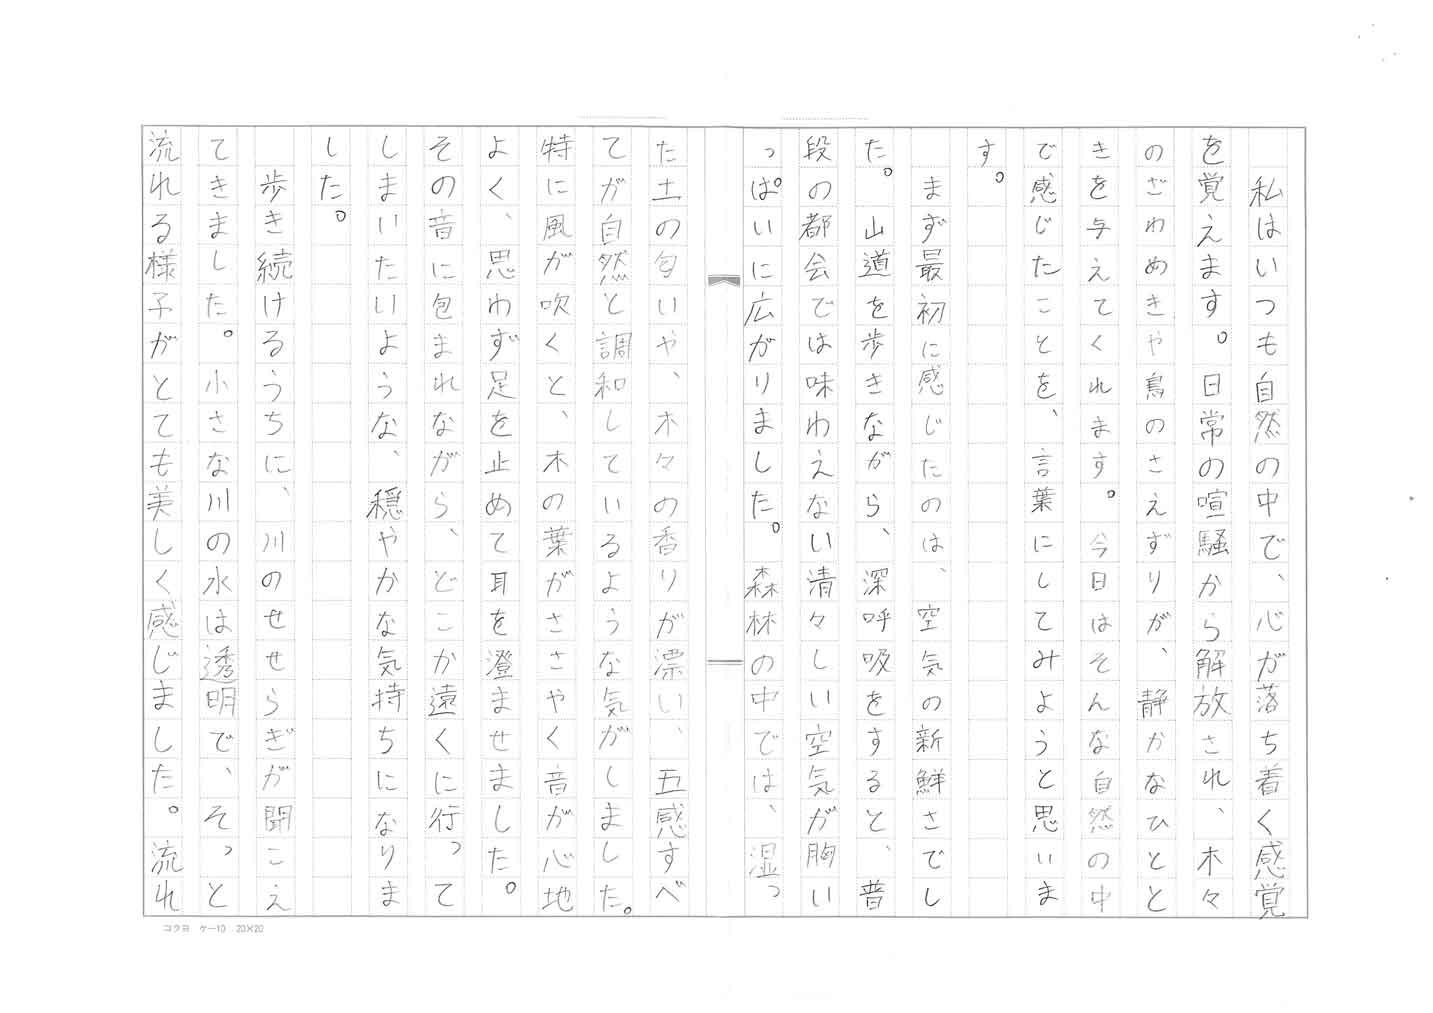 私はいつも自然の中で、心が落ち着く感覚
を覚えます。日常の喧騒から解放され、木々
のざわめきや鳥のさえずりが、静かなひとと
きを与えてくれます。今日はそんな自然の中
で感じたことを、言葉にしてみようと思いま
す。
まず最初に感じたのは、空気の新鮮さでし
た。山道を歩きながら、深呼吸をすると、普
段の都会では味わえない清々しい空気が胸い
っぱいに広がりました。森林の中では、湿っ
た土の匂いや、木々の香りが漂い、五感すべ
てが自然と調和しているような気がしました。
特に風が吹くと、木の葉がささやく音が心地
よく、思わず足を止めて耳を澄ませました。
その音に包まれながら、どこか遠くに行って
しまいたいような、穏やかな気持ちになりま
した。
歩き続けるうちに、川のせせらぎが聞こえ
てきました。小さな川の水は透明で、そっと
流れる様子がとても美しく感じました。流れ
コクヨ ケー10 20×20